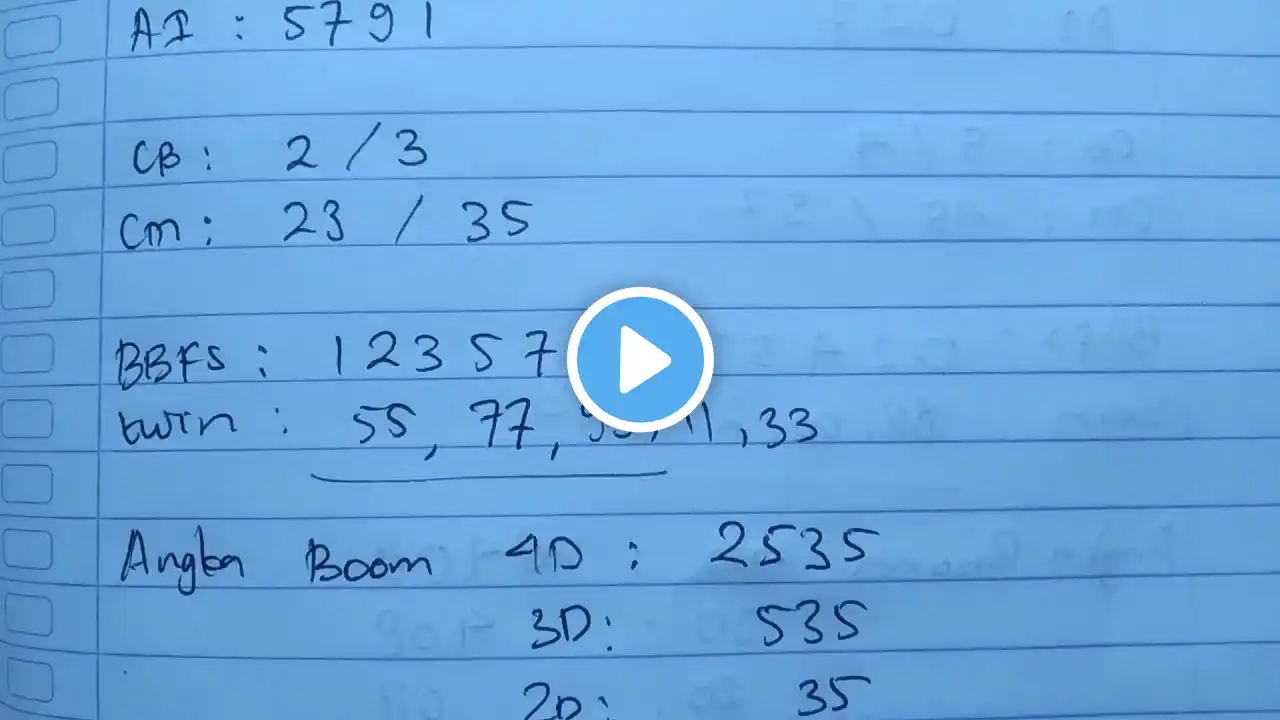 AI : 5791
CB : 2 / 3
Cm : 23 / 35
BBFS : 12357
twin : 55, 77, 11, 33
Angka Boom 4D : 2535
3D : 535
2D : 35